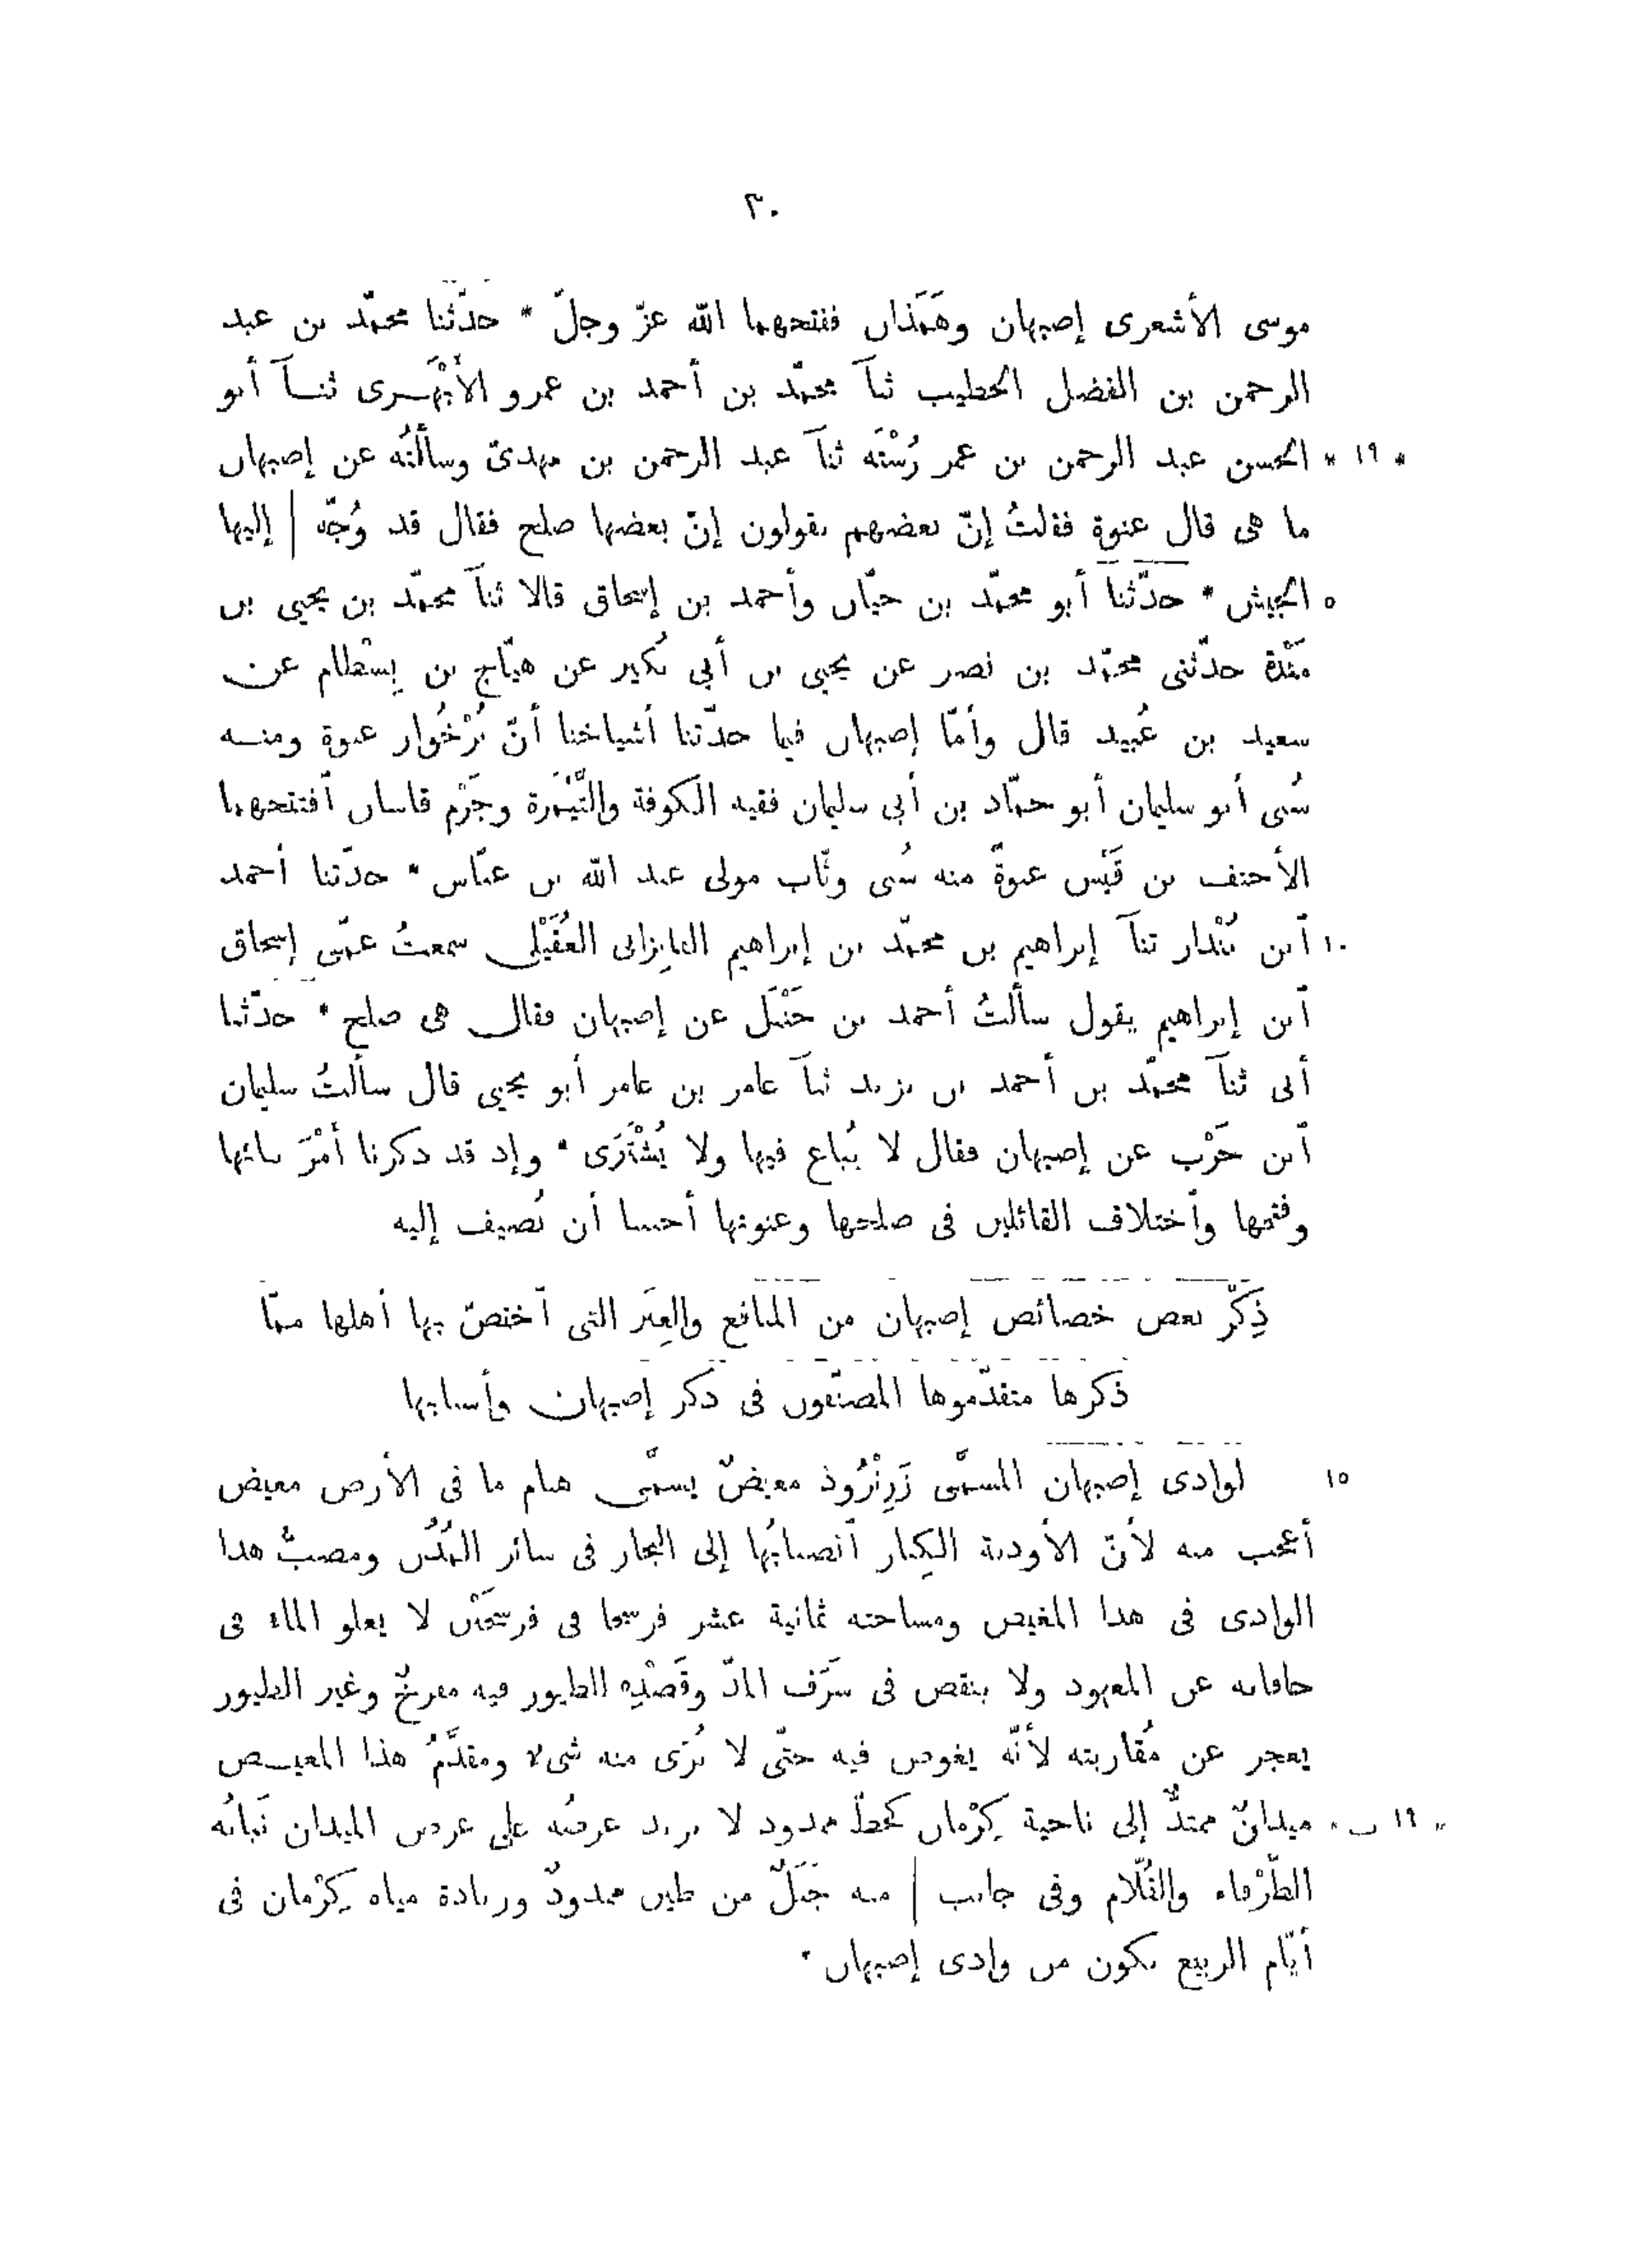 ٣٠
موسى الأشعرى إصبهان وهَمَذان ففتحهما الله عزّ وجلّ * حدّثنا محمّد بن عبد
الرحمن بن الفضل الخطيب ثنآ محمّد بن أحمد بن عمرو الأَبْهَـرى ثنـآ أبو
* ١٩ * الحسن عبد الرحمن بن عمر رُسْتَه ثنآ عبد الرحمن بن مهدىّ وسألتُه عن إصبهان
ما هى قال عنوة فقلتُ إنّ بعضهم يقولون إنّ بعضها صلح فقال قد وُجّه | إليها
٥ الجيش * حدّثنا أبو محمّد بن حيّان وأحمد بن إسحاق قالا ثنآ محمّد بن يحيى بن
مَنْدة حدّثنى محمّد بن نصر عن يحيى بن أبي بُكير عن هيّاج بن بِسْطام عن
سعيد بن عُبيد قال وأمّا إصبهان فيما حدّثنا أشياخنا أنّ بُرْخُوار عنوة ومنـه
سُبى أبو سليمان أبو حمّاد بن أبى سليمان فقيه الكوفة والتَّيْمَرة وجَرْم قاسان ٱفتتحهما
الأحنف بن قَيْس عنوةً منه سُبى وثّاب مولى عبد الله بن عبّاس * حدّثنا أحمد
١٠ ٱبن بُنْدار ثنآ إبراهيم بن محمّد بن إبراهيم العُقَيْلى سمعتُ عمّى إسحاق
ٱبن إبراهيم يقول سألتُ أحمد بن حَنْبَل عن إصبهان فقال هى صلح * حدّثنا
أبى ثنآ محمّد بن أحمد بن يزيد ثنآ عامر بن عامر أبو يحيى قال سألتُ سليمان
ٱبن حَرْب عن إصبهان فقال لا يُباع فيها ولا يُشْتَرَى * وإذ قد ذكرنا أَمْرَ بنائها
وفتحها وٱختلاف القائلين فى صلحها وعنوتها أحببنا أن نُضيف إليه
ذِكْر بعض خصائص إصبهان من المنافع والعِبَر التى ٱختصّ بها أهلها ممّا
ذكرها متقدّموها المصنّفون فى ذكر إصبهان وأسبابها
١٥ لوادى إصبهان المسمّى زَرِنْرُوذ مغيضٌ يسمّى هنام ما فى الأرض مغيض
أعجب منه لأنّ الأودية الكِبار ٱنصبابُها إلى البحار فى سائر المُدُن ومصبُّ هذا
الوادى فى هذا المغيض ومساحته ثمانية عشر فرسخا فى فرسخَيْن لا يعلو الماء فى
حافاته عن المعهود ولا ينقص فى سَرَف المادّ وقَصْدِه الطيور فيه مفرخٌ وغير الطيور
يعجز عن مُقاربته لأنّه يغوص فيه حتّى لا يُرَى منه شىء ومقدَّمُ هذا المغيـض
* ١٩ ب * ميدانٌ ممتدٌّ إلى ناحية كِرْمان كخطّ ممدود لا يزيد عرضُه على عرض الميدان نَباتُه
الطَّرْفاء والقُلّام وفى جانب | منه جَبَلٌ من طين ممدودٌ وزيادة مياه كِرْمان فى
أيّام الربيع يكون من وادى إصبهان *